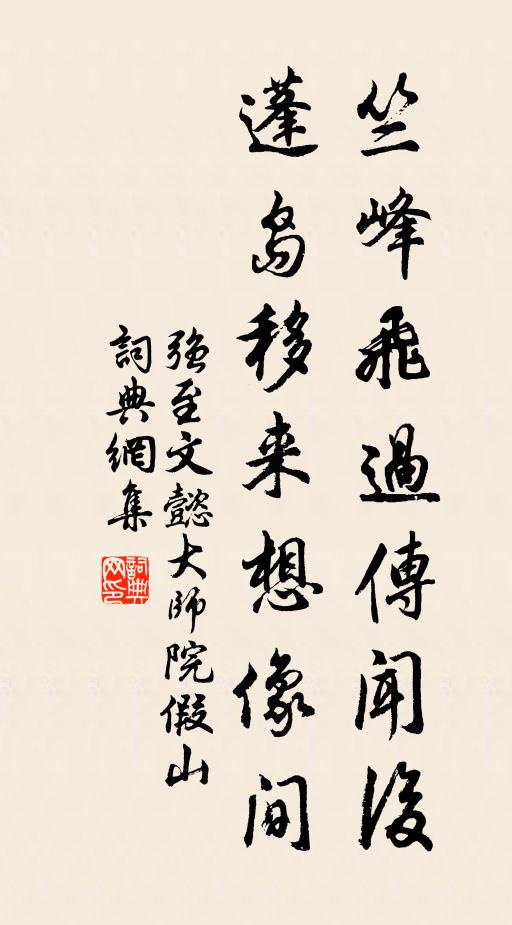 竺峰飛過傳聞後
蓬島移来想像間
強至文懿大師院假山
詞典網集
詞典网印